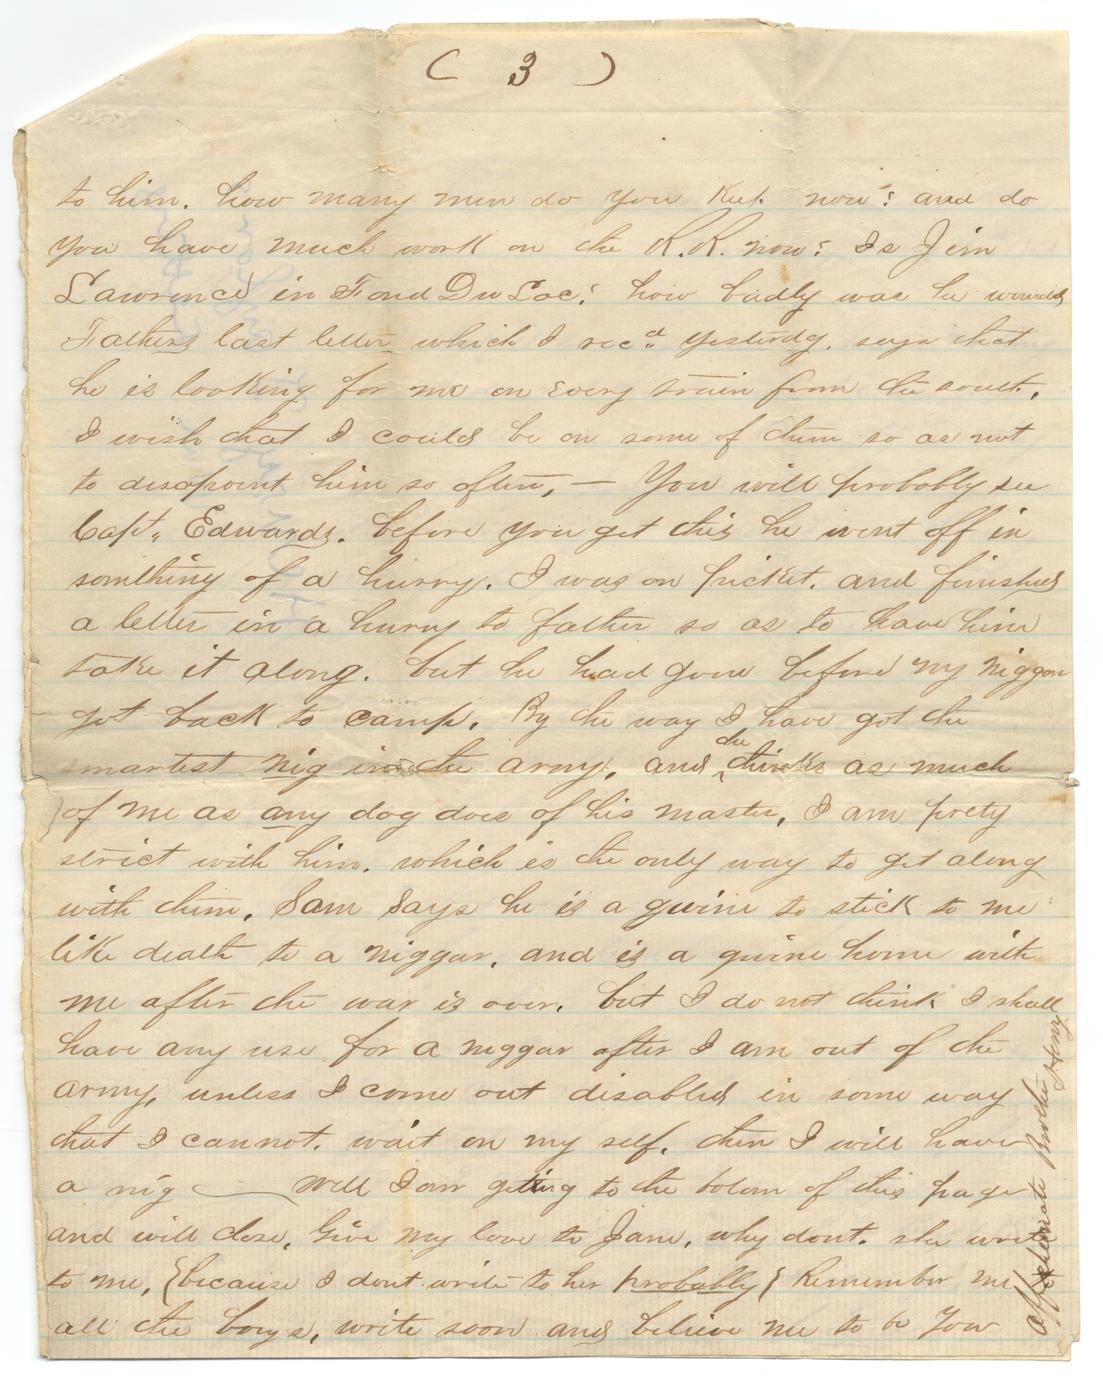 ( 3 )
to him. how many men do you Keep now? and do
you have much work on the R.R. now? Is Jim
Lawrence in Fond Du Lac? how badly was he wounded
Fathers last letter which I recd yesterdy. says that
he is looking for me on every train from the south,
I wish that I could be on some of them so as not
to disapoint him so often, — You will probably see
Capt. Edwards. before you get this he went off in
somthing of a hurry. I was on picket. and finished
a letter in a hurry to father so as to have him
take it along. but he had gone before my niggar
got back to camp. By the way I have got the
smartest nig in the army, and he thinks as much
of me as any dog does of his master, I am prety
strict with him. which is the only way to get along
with them. Sam says he is a gwine to stick to me
like death to a niggar, and is a gwine home with
me after the war is over. but I do not think I shall
have any use for a niggar after I am out of the
army, unless I come out disabled in some way
that I cannot. wait on my self. then I will have
a nig — Well I am getting to the botom of this page
and will close, Give my love to Jane, why dont. she write
to me, {because I dont write to her probably} Remember me
all the boys, write soon and believe me to be Your
Affectionate Brother Henry